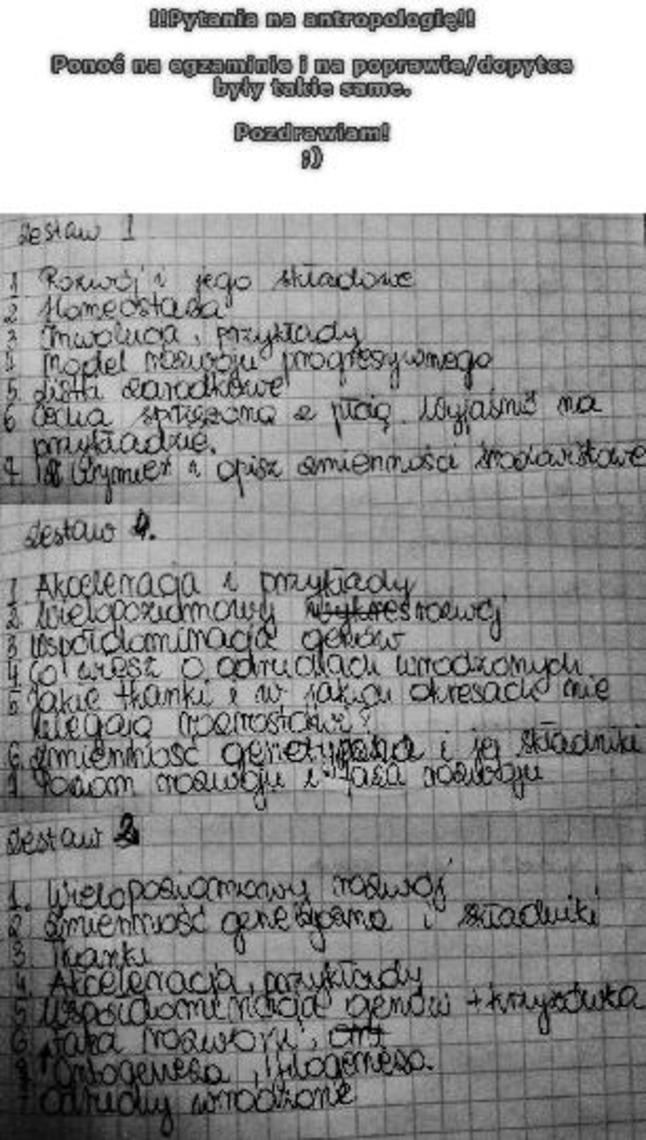 !!Pytania na antropologię!!
Ponoć na egzaminie i na poprawie/dopytce
były takie same.
Pozdrawiam!
;)
Zestaw 1
1 Rozwój i jego składowe
2 Homeostaza
3 Inwolucja, przykłady
4 Model rozwoju progresywnego
5. Listki zarodkowe
6 Cecha sprzężona z płcią. Wyjaśnić na
przykładzie.
7 Wymień i opisz zmienności środowiskowe
Zestaw 4.
1 Akceleracja i przykłady
2. Wielopoziomowy rozwój
3 Współdominacja genów
4 Co wiesz o odruchach wrodzonych
5 Jakie tkanki i w jakich okresach nie
ulegają rozrostowi?
6. Zmienność genetyczna i jej składniki
7. Poziom rozwoju i faza rozwoju
Zestaw 2
1. Wielopoziomowy rozwój
2 Zmienność genetyczna i składniki
3 Tkanki
4 Akceleracja, przykłady
5 Współdominacja genów + krzyżówka
6 Faza rozwoju,
Ontogeneza, filogeneza.
Odruchy wrodzone